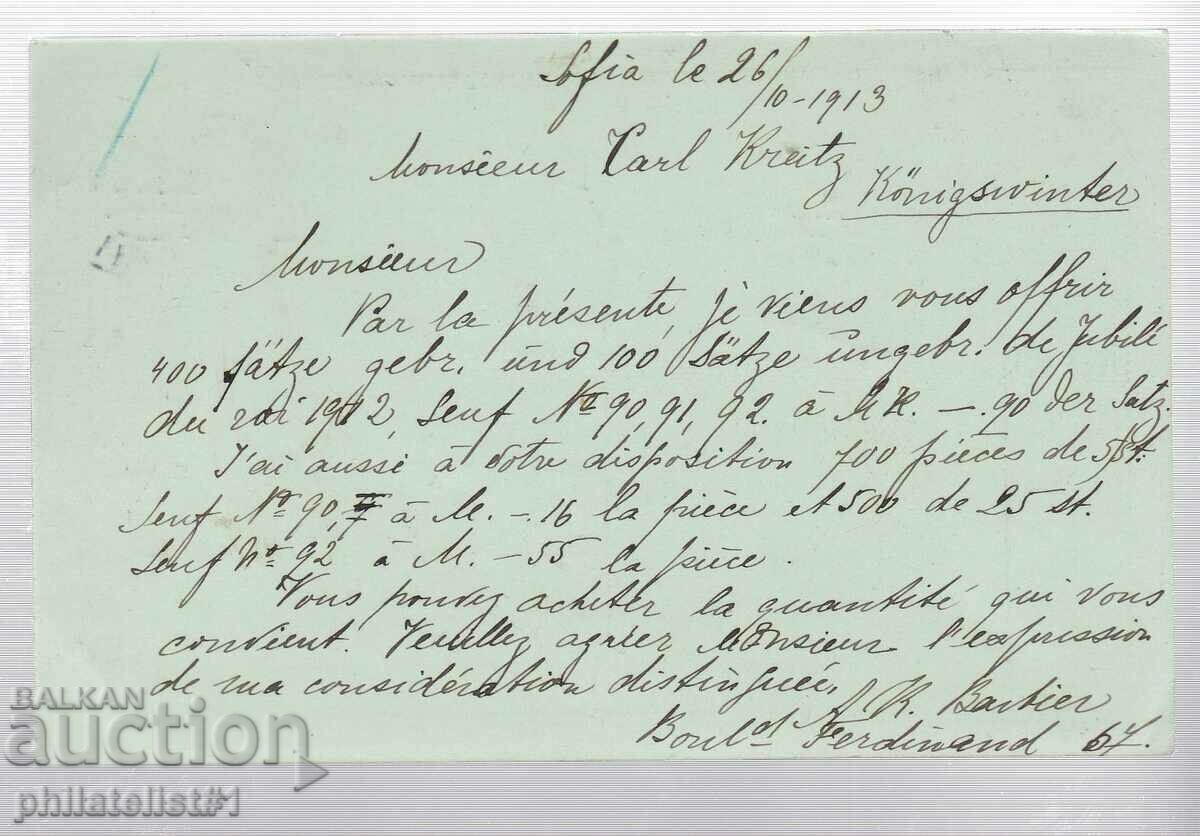 Sofia le 26/
10-1913
Monsieur Carl Kreitz
Königswinter
Monsieur
Par la présente, je viens vous offrir
400 Sätze gebr. und 100 Sätze ungebr. de Jubilé
du roi 1912, Senf No 90, 91, 92. à MK. -.90 der Satz.
J'ai aussi à votre disposition 700 pièces de 5 st.
Senf No 90, à M. -.16 la pièce et 500 de 25 st.
Senf No 92 à M. -55 la pièce.
Vous pouvez acheter la quantité qui vous
convient. Veuillez agréer Monsieur l'expression
de ma considération distinguée,
A R. Barbier
Bould Ferdinand 67.
BALKAN
auction
philatelist#1